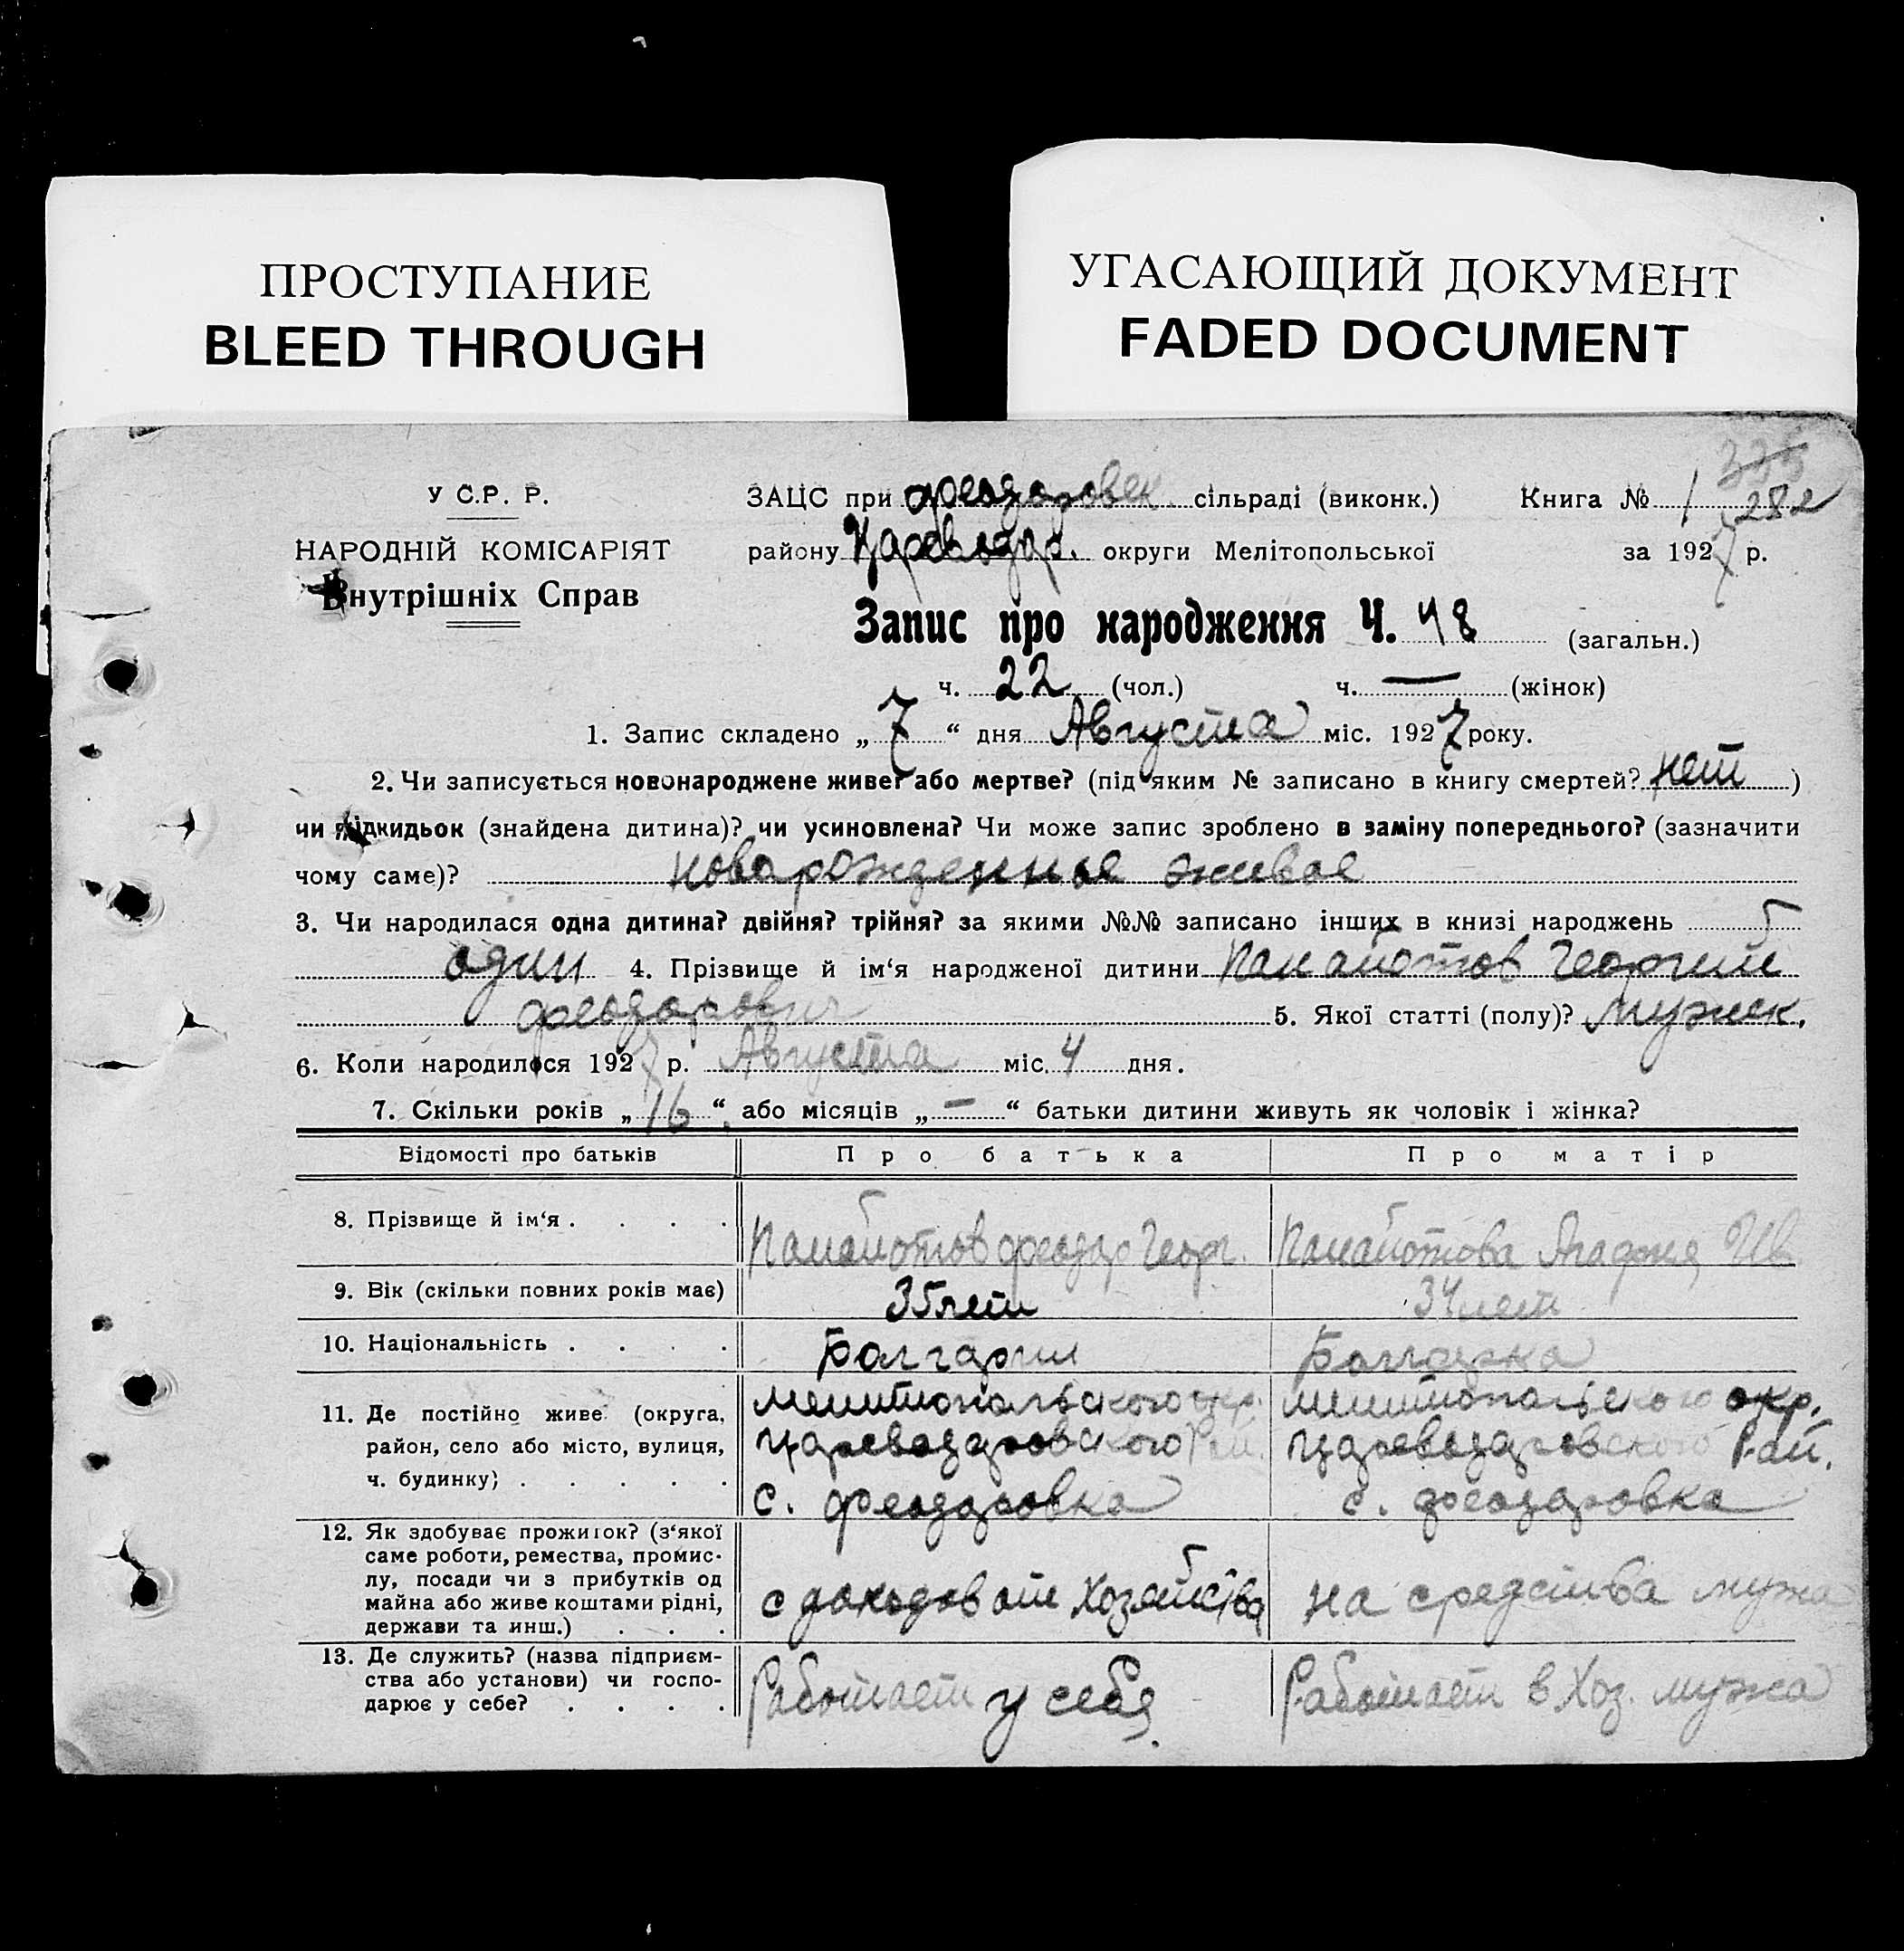 ПРОСТУПАНИЕ
BLEED THROUGH
УГАСАЮЩИЙ ДОКУМЕНТ
FADED DOCUMENT
335
У С.Р. Р.
НАРОДНІЙ КОМІСАРІЯТ
Внутрішніх Справ
ЗАЦС при Феодоровск сільраді (виконк.) Книга № 1 282
району Цареводар. округи Мелітопольської за 1927 р.
Запис про народження Ч. 48 (загальн.)
ч. 22 (чол.) ч. — (жінок)
1. Запис складено „7“ дня Августа міс. 1927 року.
2. Чи записується новонароджене живе? або мертве? (під яким № записано в книгу смертей? нет)
чи підкидьок (знайдена дитина)? чи усиновлена? Чи може запис зроблено в заміну попереднього? (зазначити
чому саме)? новарожденное живое
3. Чи народилася одна дитина? двійня? трійня? за якими №№ записано інших в книзі народжень
один 4. Прізвище й ім‘я народженої дитини Панайотов Георгий
Феодорович 5. Якої статті (полу)? мужск.
6. Коли народилося 1927 р. Августа міс. 4 дня.
7. Скільки років „16“ або місяців „—“ батьки дитини живуть як чоловік і жінка?
Відомості про батьків Про батька Про матір
8. Прізвище й ім‘я . . . . Панайотов Феодар Георг. Панайотова Агафия Ив
9. Вік (скільки повних років має) 35 лет 34 лет
10. Національність . . . . Болгарин Болгарка
11. Де постійно живе (округа, район, село або місто, вулиця, ч. будинку) . . . . .
Мелитопальского окр. Мелитопальского окр.
Царевадаровского Рай. Царевадаровского Рай.
с. Феодаровка с. Феодаровка
12. Як здобуває прожиток? (з‘якої
саме роботи, ремества, промис-
лу, посади чи з прибутків од
майна або живе коштами рідні,
держави та инш.) . . .
с доходов от Хозяйства на средства мужа
13. Де служить? (назва підприєм-
ства або установи) чи госпо-
дарює у себе? . . . .
Работает у себя. Работает в Хоз. мужа